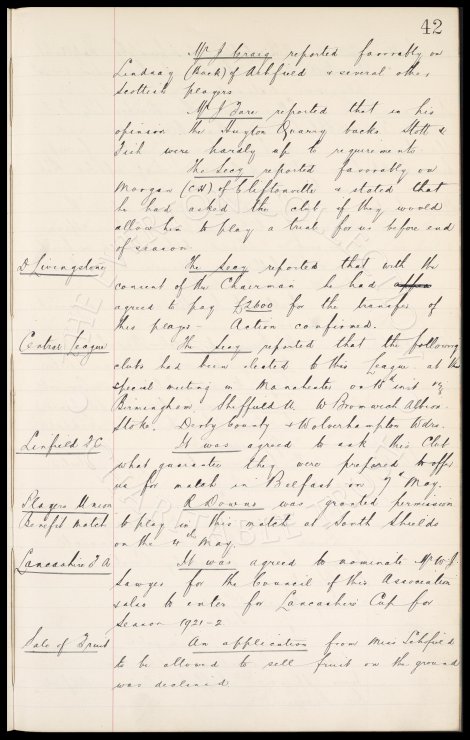 42
Mr J Craig reported favorably on
Lindsay (Back) of Ashfield & several other
Scottish players
Mr J Fare reported that in his
opinion the Huyton Quarry backs Stott &
Fish were hardly up to requirements
The Secy reported favorably on
Morgan (CH) of Cliftonville & stated that
he had asked the club if they would
allow him to play a trial for us before end
of season
D. Livingstone The Secy reported that with the
consent of the Chairman he had
agreed to pay £2600 for the transfer of
this player - Action confirmed.
Central League The Secy reported that the following
clubs had been elected to this League at the
special meeting in Manchester on 10th inst viz
Birmingham, Sheffield U. W Bromwich Albion.
Stoke. Derby County & Wolverhampton Wdrs.
Linfield F.C It was agreed to ask this Club
what guarantee they were prepared to offer
us for match in Belfast on 7th May.
Players Union R Downs was granted permission
Benefit match to play in this match at South Shields
on the 4th May.
Lancashire F.A It was agreed to nominate Mr W.J.
Sawyer for the Council of this Association
also to enter for Lancashire Cup for
Season 1921-2
Sale of Fruit An application from Miss Schofield
to be allowed to sell fruit on the ground
was declined.